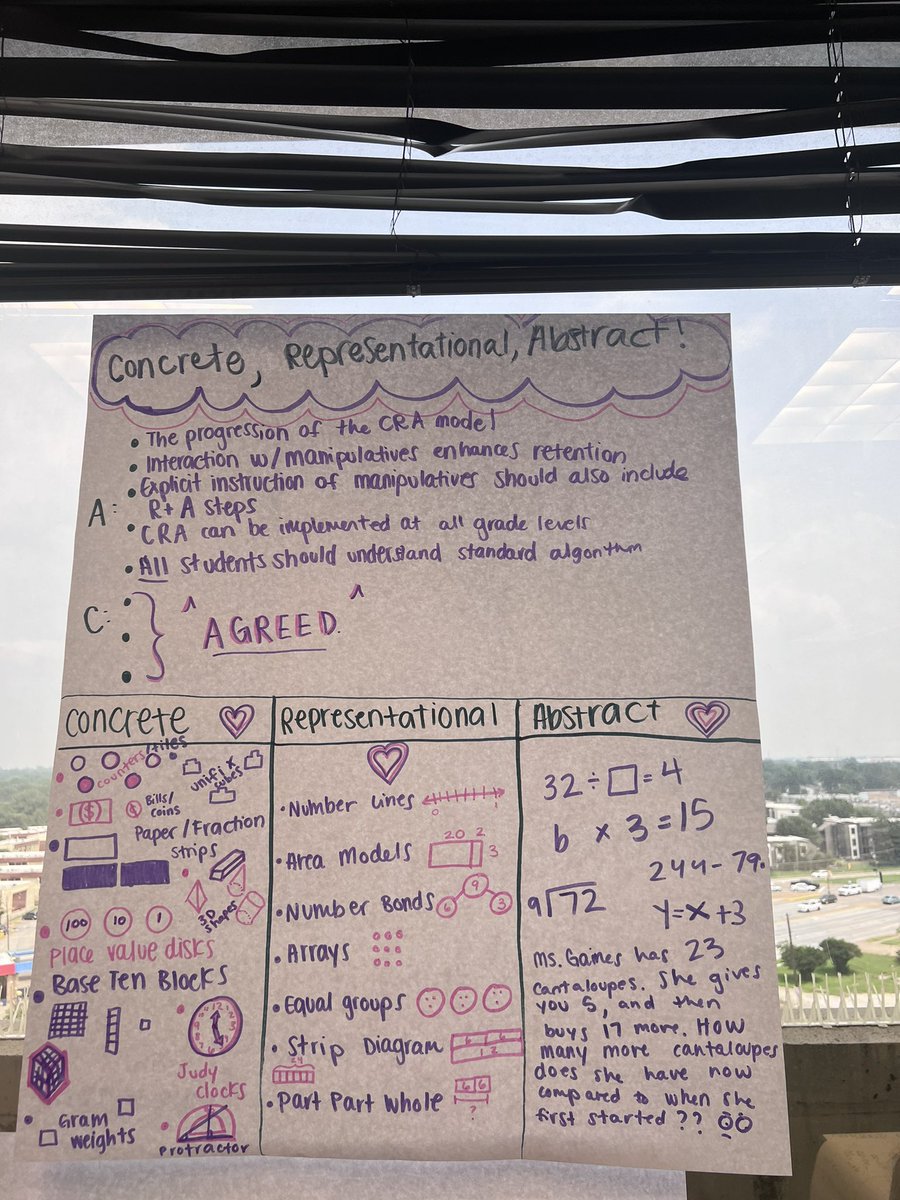 Concrete, Representational, Abstract!
• The progression of the CRA model
• Interaction w/manipulatives enhances retention
• Explicit instruction of manipulatives should also include
A: R+A steps
• CRA can be implemented at all grade levels
• All students should understand standard algorithm
C: • • • } ^ AGREED. ^
Concrete
• counters/tiles
unifix cubes
• ($) Bills/
coins
• Paper/Fraction
strips
• 3D
shapes
• 100 10 1
Place value disks
• Base Ten Blocks
• 12 1 2 3 4 5 6 7 8 9
Judy
clocks
• Gram
weights
• Protractor
Representational
• Number Lines 0 1
• Area Models 20 2 3
• Number Bonds 9 6 3
• Arrays
• Equal groups
• Strip Diagram 6 6 12
24
• Part Part Whole 6 6 ?
Abstract
32 ÷ □ = 4
b × 3 = 15
244 - 79.
9)72
y=x+3
Ms. Gaines has 23
cantaloupes. She gives
you 5, and then
buys 17 more. How
many more cantaloupes
does she have now
compared to when she
first started ??